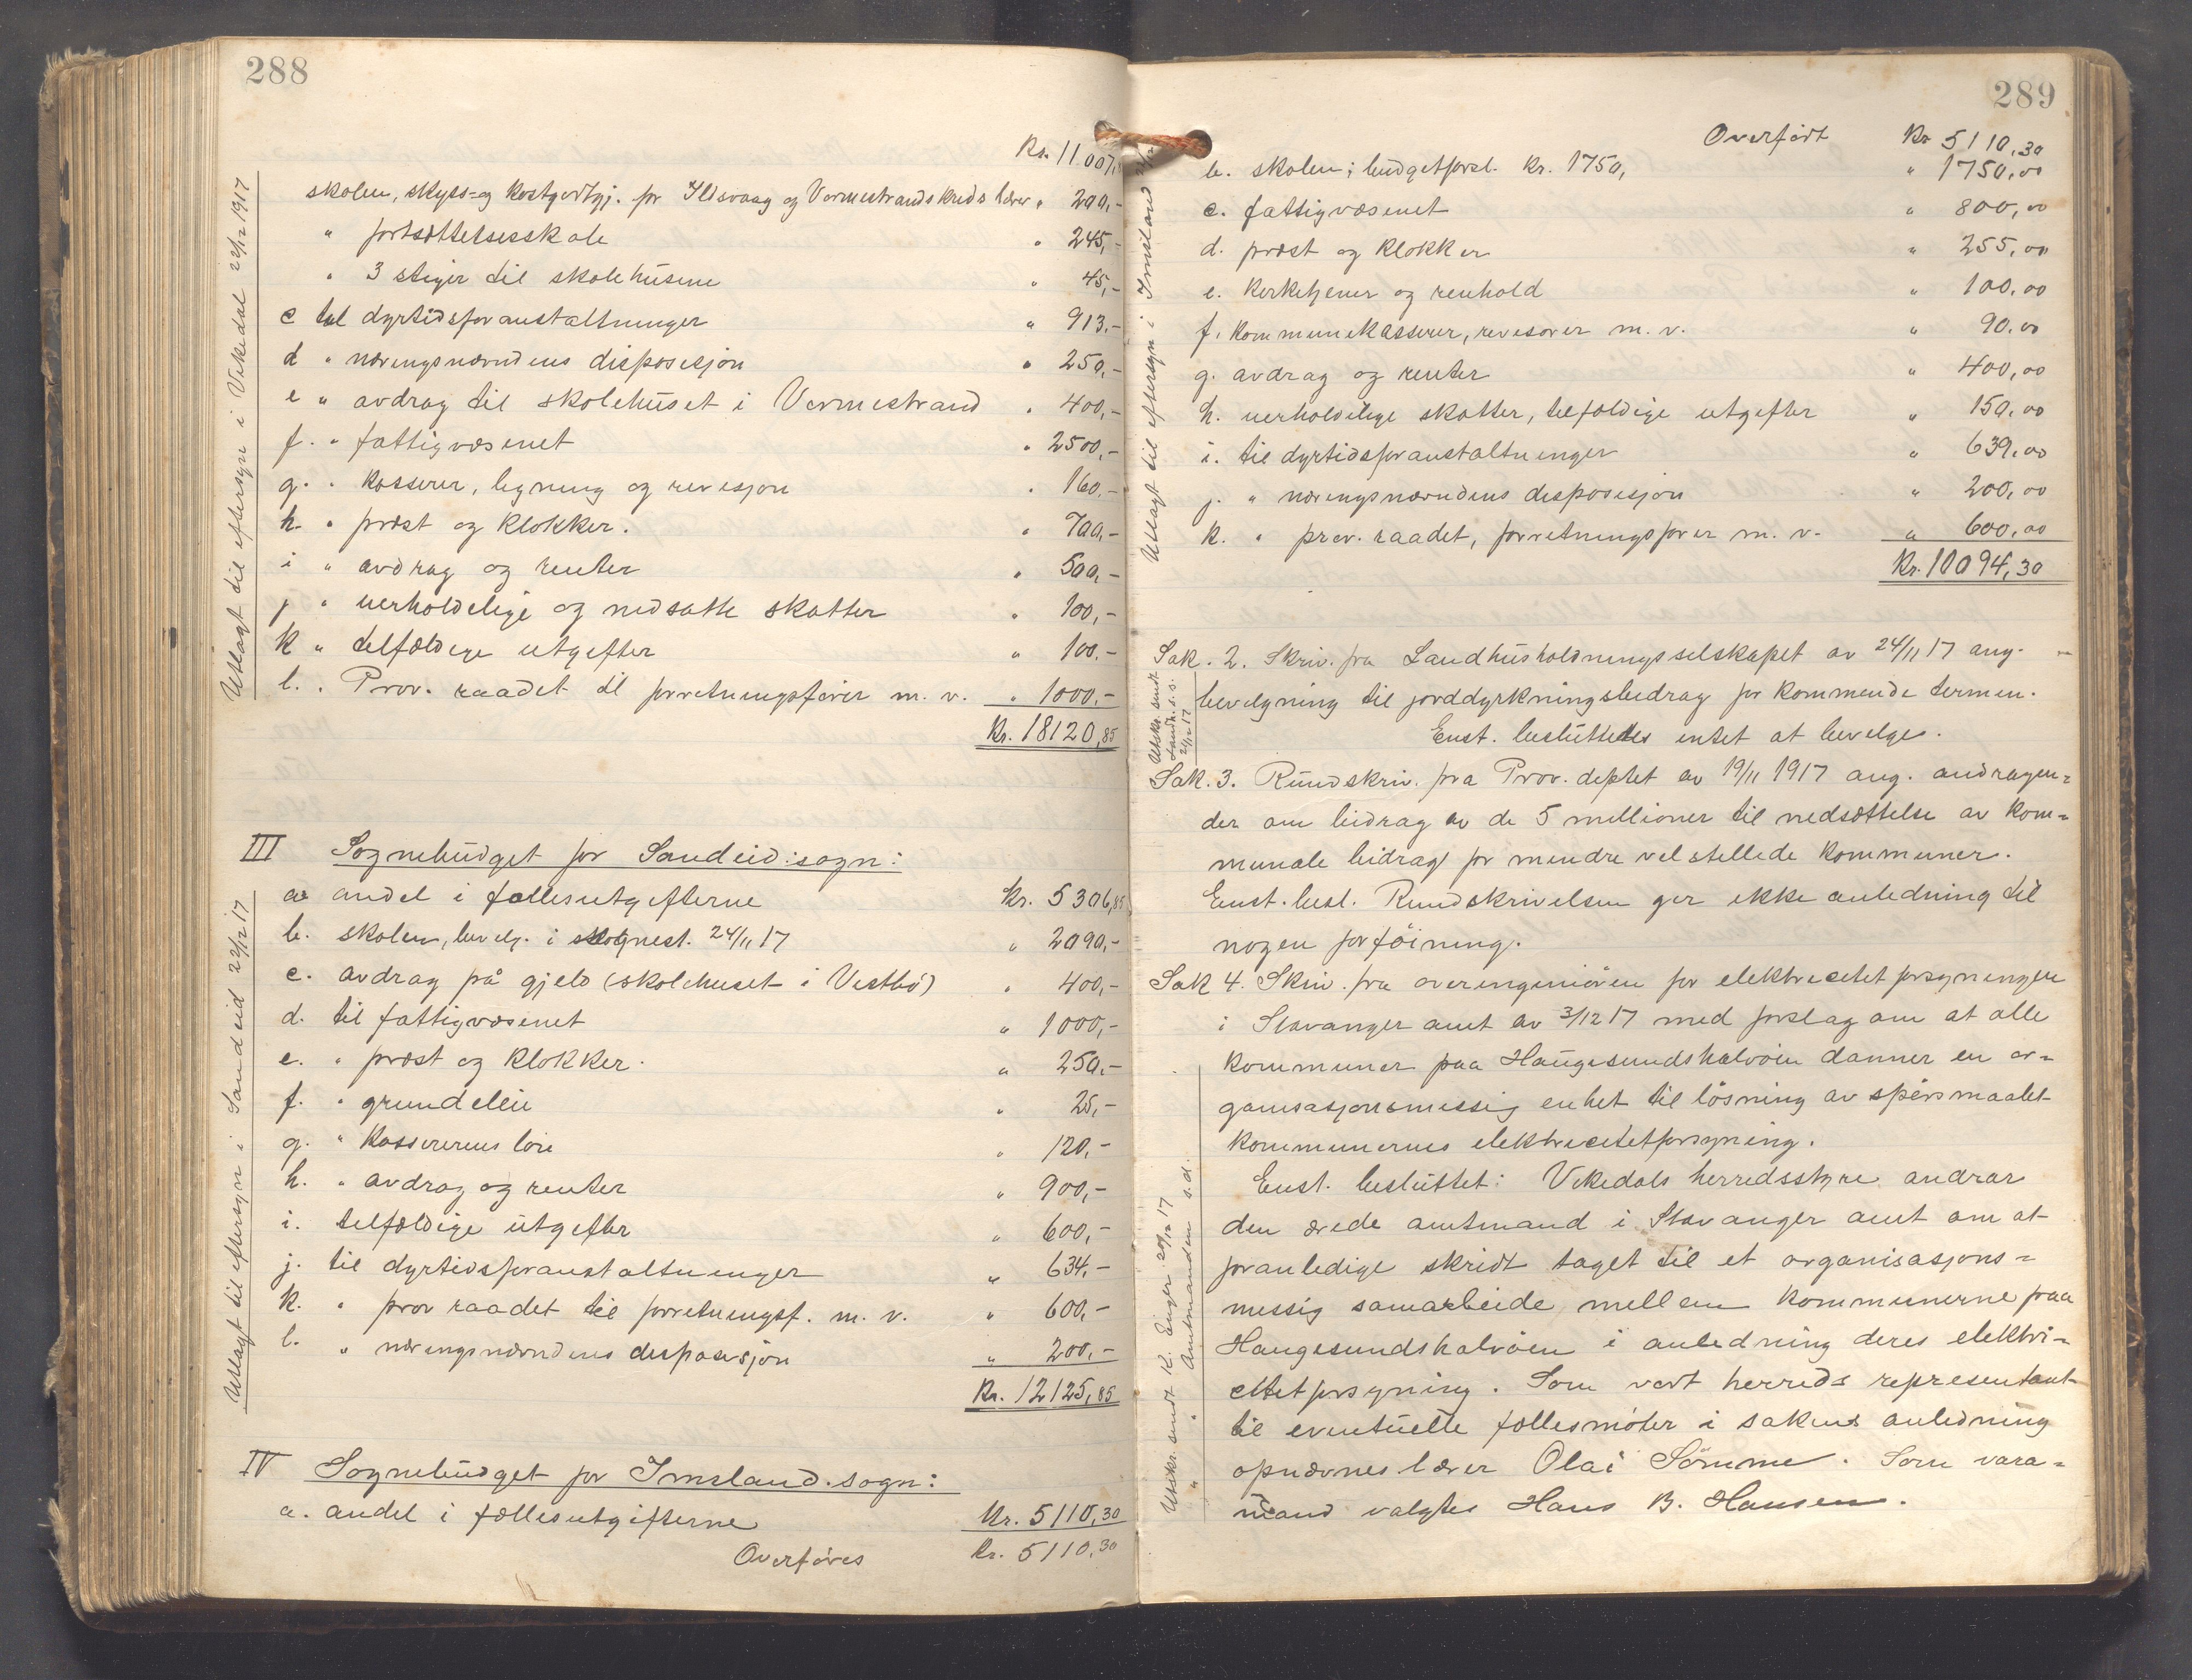 288
Utlagt til eftersyn i Vikedal 22/12 1917
Kr. 11.007,
skolen, skyss- og kostgodtgj. for Ilsvaag og Vormestrandskreds lærer " 200,-
" fortsættelsesskole " 245,-
" 3 stiger til skolehusene " 45,-
c til dyrtidsforanstaltninger " 913,-
d " næringsnævndens disposisjon " 250,-
e " avdrag til skolehuset i Vormestrand " 400,-
f. " fattigvæsenet " 2500,-
g. " kasserer, ligning og revisjon " 160,-
h. " prest og klokker. " 700,-
i " avdrag og renter " 500,-
j " uerholdelige og nedsatte skatter " 100,-
k " tilfældige utgifter " 100,-
l. " Prov. raadet til forretningsfører m. v. " 1000,-
Kr. 18120,85
Utlagt til eftersyn i Sandeid 22/12 17
III Sognebudget for Sandeid sogn:
a andel i fællesutgifterne kr. 5306,85
b. skolen, bevilg. i sognest. 24/11 17 " 2090,-
c. avdrag på gjeld (skolehuset i Vestbø) " 400,-
d. til fattigvæsenet " 1000,-
e. " prest og klokker. " 250,-
f. " grundleie " 25,-
g. " kassererens løn " 120,-
h. " avdrag og renter " 900,-
i. tilfældige utgifter " 600,-
j. til dyrtidsforanstaltninger " 634,-
k. " prov raadet til forretningsf. m. v. " 600,-
l. " næringsnævndens disposisjon " 200,-
Kr. 12125,85
IV Sognebudget for Imsland sogn:
a. andel i fællesutgifterne Kr. 5110,30
Overføres Kr. 5110,30
289
Utlagt til eftersyn i Imsland
Overført Kr 5110,30
b. skolen; budgetforsl. kr. 1750, " 1750,00
c. fattigvæsenet " 800,00
d. prest og klokker " 255,00
e. kirketjener og renhold " 100,00
f. kommunekasserer, revisorer m. v. " 90,00
g. avdrag og renter " 400,00
h. uerholdelige skatter, tilfældige utgifter " 150,00
i. til dyrtidsforanstaltninger " 639,00
j. " næringsnævndens disposisjon " 200,00
k. " prov. raadet, forretningsfører m. v. " 600,00
Kr. 10094,30
Sak. 2. Skriv. fra Landhusholdningsselskapet av 24/11 17 ang.
bevilgning til jorddyrkningsbidrag for kommende termin.
Enst. besluttedes intet at bevilge.
Utskr. sendt
Landh. s. s.
22/12 17
Sak. 3. Rundskriv. fra Prov. deptet av 19/11 1917 ang. andragen=
der om bidrag av de 5 millioner til nedsættelse av kom=
munale bidrag for mindre velstillede kommuner.
Enst. besl. Rundskrivelsen gir ikke anledning til
nogen forføining.
Sak 4. Skriv. fra overingeniøren for elektricitetforsyningen
i Stavanger amt av 3/12 17 med forslag om at alle
kommuner paa Haugesundshalvøen danner en or=
ganisasjonsmessig enhet til løsning av spørsmaalet
kommunernes elektricitetforsyning.
Enst. besluttet: Vikedals herredsstyre andrar
den ærede amtmand i Stavanger amt om at
foranledige skridt taget til et organisasjons=
messig samarbeide mellem kommunerne paa
Haugesundshalvøen i anledning deres elektri=
citetforsyning. Som vort herreds representant
til eventuelle fællesmøter i sakens anledning
opnævnes lærer Olai Sømme. Som vara=
mand valgtes Hans B. Hansen.
Utskr. sendt K. Einger 29/12 17
" " Amtmanden s.d.